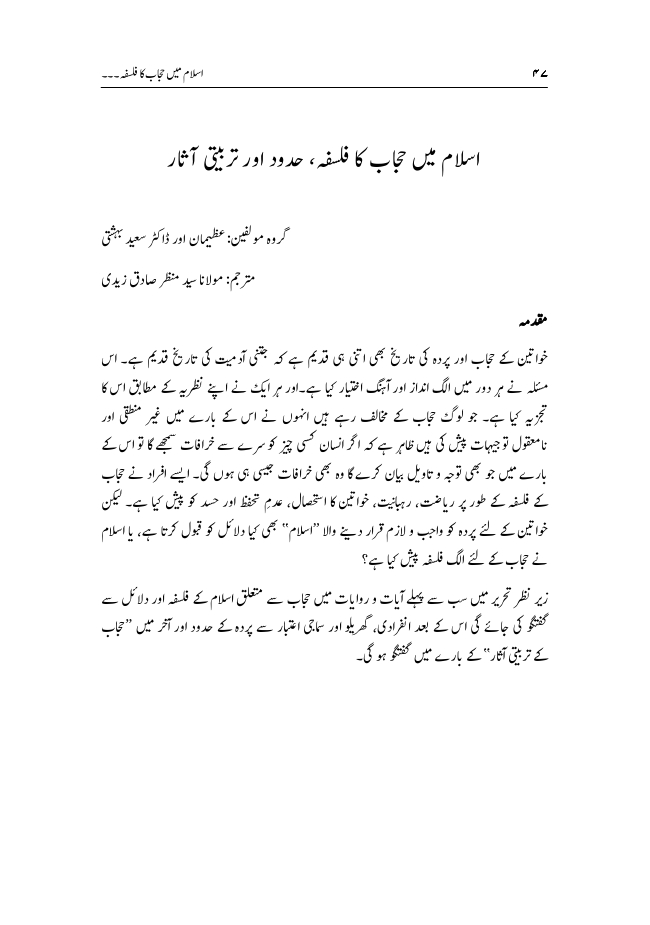 ۴۷ اسلام میں حجاب کا فلسفہ ۔۔۔
اسلام میں حجاب کا فلسفہ، حدود اور تربیتی آثار
گروہ مولفین: عظیمان اور ڈاکٹر سعید بہشتی
مترجم: مولانا سید منظر صادق زیدی
مقدمہ
خواتین کے حجاب اور پردہ کی تاریخ بھی اتنی ہی قدیم ہے کہ جتنی آدمیت کی تاریخ قدیم ہے۔ اس
مسئلہ نے ہر دور میں الگ انداز اور آہنگ اختیار کیا ہے۔اور ہر ایک نے اپنے نظریہ کے مطابق اس کا
تجزیہ کیا ہے۔ جو لوگ حجاب کے مخالف رہے ہیں انہوں نے اس کے بارے میں غیر منطقی اور
نامعقول توجیہات پیش کی ہیں ظاہر ہے کہ اگر انسان کسی چیز کو سرے سے خرافات سمجھے گا تو اس کے
بارے میں جو بھی توجہ و تاویل بیان کرے گا وہ بھی خرافات جیسی ہی ہوں گی۔ ایسے افراد نے حجاب
کے فلسفہ کے طور پر ریاضت، رہبانیت، خواتین کا استحصال، عدمِ تحفظ اور حسد کو پیش کیا ہے۔ لیکن
خواتین کے لئے پردہ کو واجب و لازم قرار دینے والا ”اسلام“ بھی کیا دلائل کو قبول کرتا ہے، یا اسلام
نے حجاب کے لئے الگ فلسفہ پیش کیا ہے؟
زیر نظر تحریر میں سب سے پہلے آیات و روایات میں حجاب سے متعلق اسلام کے فلسفہ اور دلائل سے
گفتگو کی جائے گی اس کے بعد انفرادی، گھریلو اور سماجی اعتبار سے پردہ کے حدود اور آخر میں ”حجاب
کے تربیتی آثار“ کے بارے میں گفتگو ہو گی۔